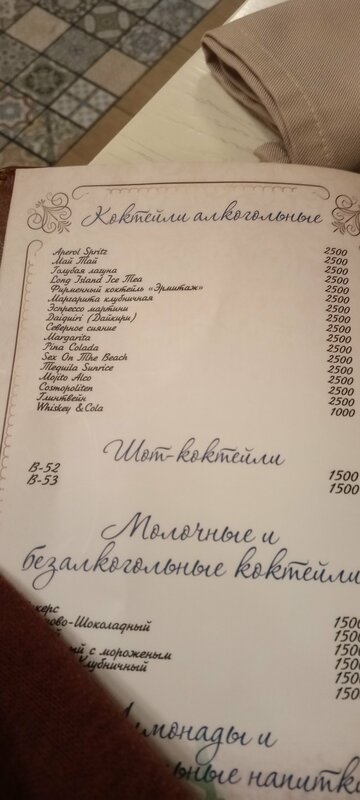 Коктейли алкогольные
Aperol Spritz 2500
Май Тай 2500
Голубая лагуна 2500
Long Island Ice Tea 2500
Фирменный коктейль «Эрмитаж» 2500
Маргарита клубничная 2500
Эспрессо мартини 2500
Daiquiri (Дайкири) 2500
Северное сияние 2500
Margarita 2500
Pina Colada 2500
Sex On The Beach 2500
Tequila Sunrice 2500
Mojito Alco 2500
Cosmopoliten 2500
Глинтвейн 2500
Whiskey & Cola 1000
Шот-коктейли
B-52 1500
B-53 1500
Молочные и
безалкогольные коктейли
1500
-Шоколадный 1500
1500
с мороженым 1500
Клубничный 1500
1500
Лимонады и
напитки